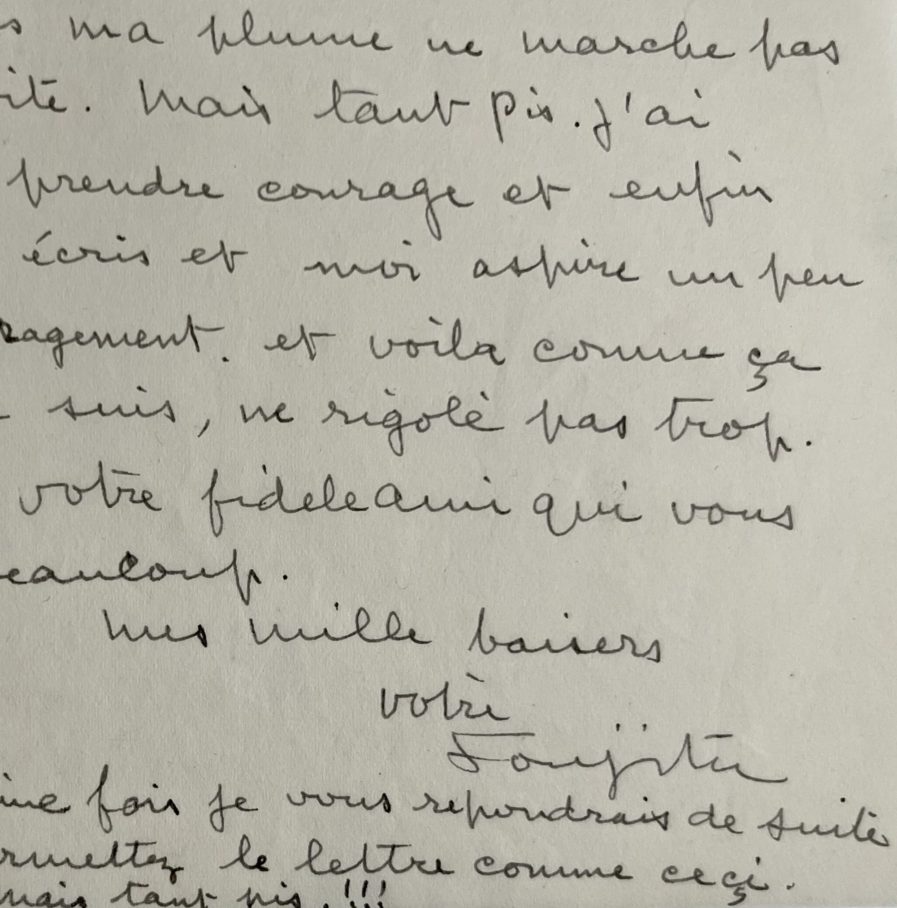 s ma plume ne marche pas
ite. Mais tant pis. j'ai
prendre courage et enfin
écris et moi aspire un peu
ragement. et voila comme ça
suis, ne rigolè pas trop.
votre fidele ami qui vous
eaucoup.
mes mille baisers
votre
Foujita
ine fois je vous repondrais de suite
rmettez le lettre comme ceçi.
mais tant pis.!!!